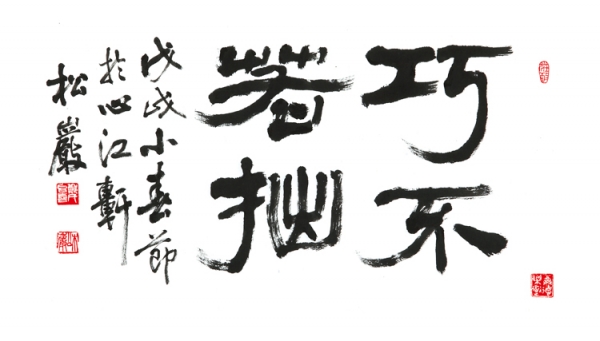 巧不
若拙
戊戌小春節
於心江軒
松巖